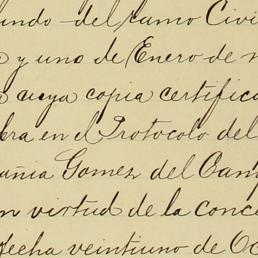 undo del ramo Civi
y uno de Enero de
a cuya copia certific
era en el Protocolo del
añia Gomez del Cam
n virtud de la conc
fecha veintiuno de Oc